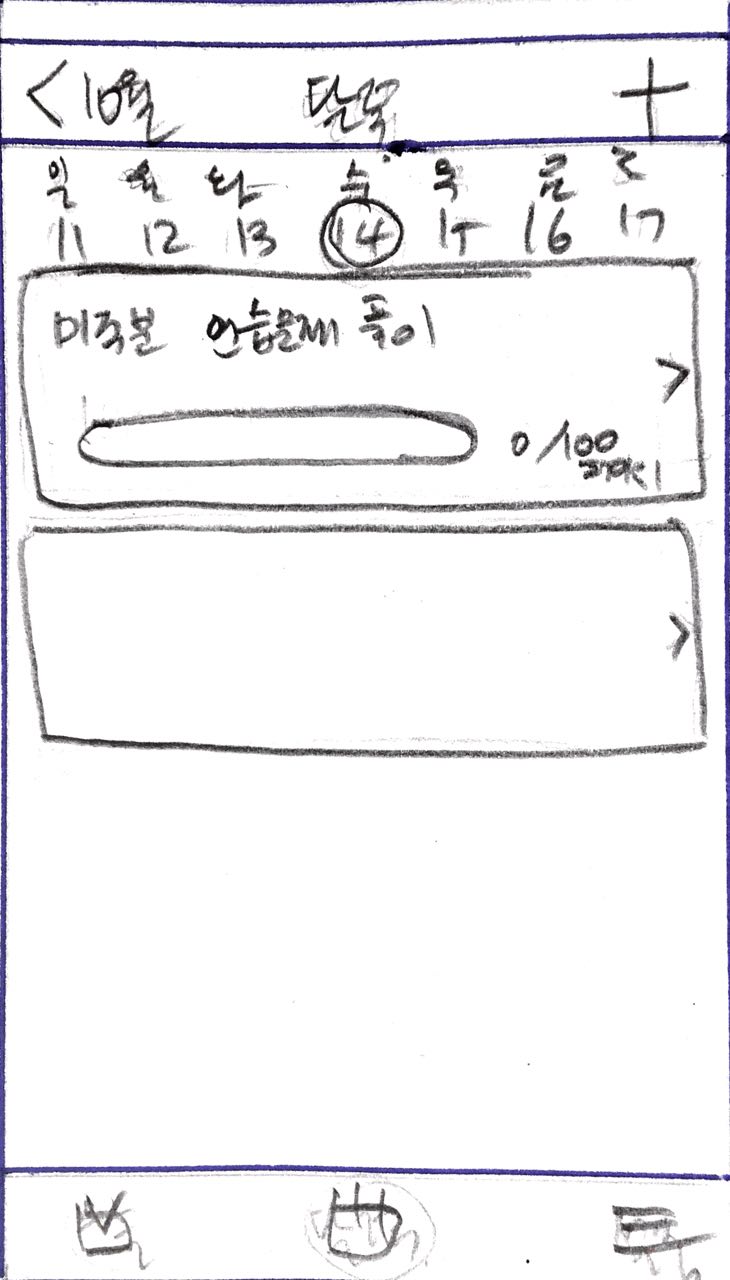 < 10월 달력 +
일 월 화 수 목 금 토
11 12 13 14 15 16 17
미적분 연습문제 풀이
>
0/100
>